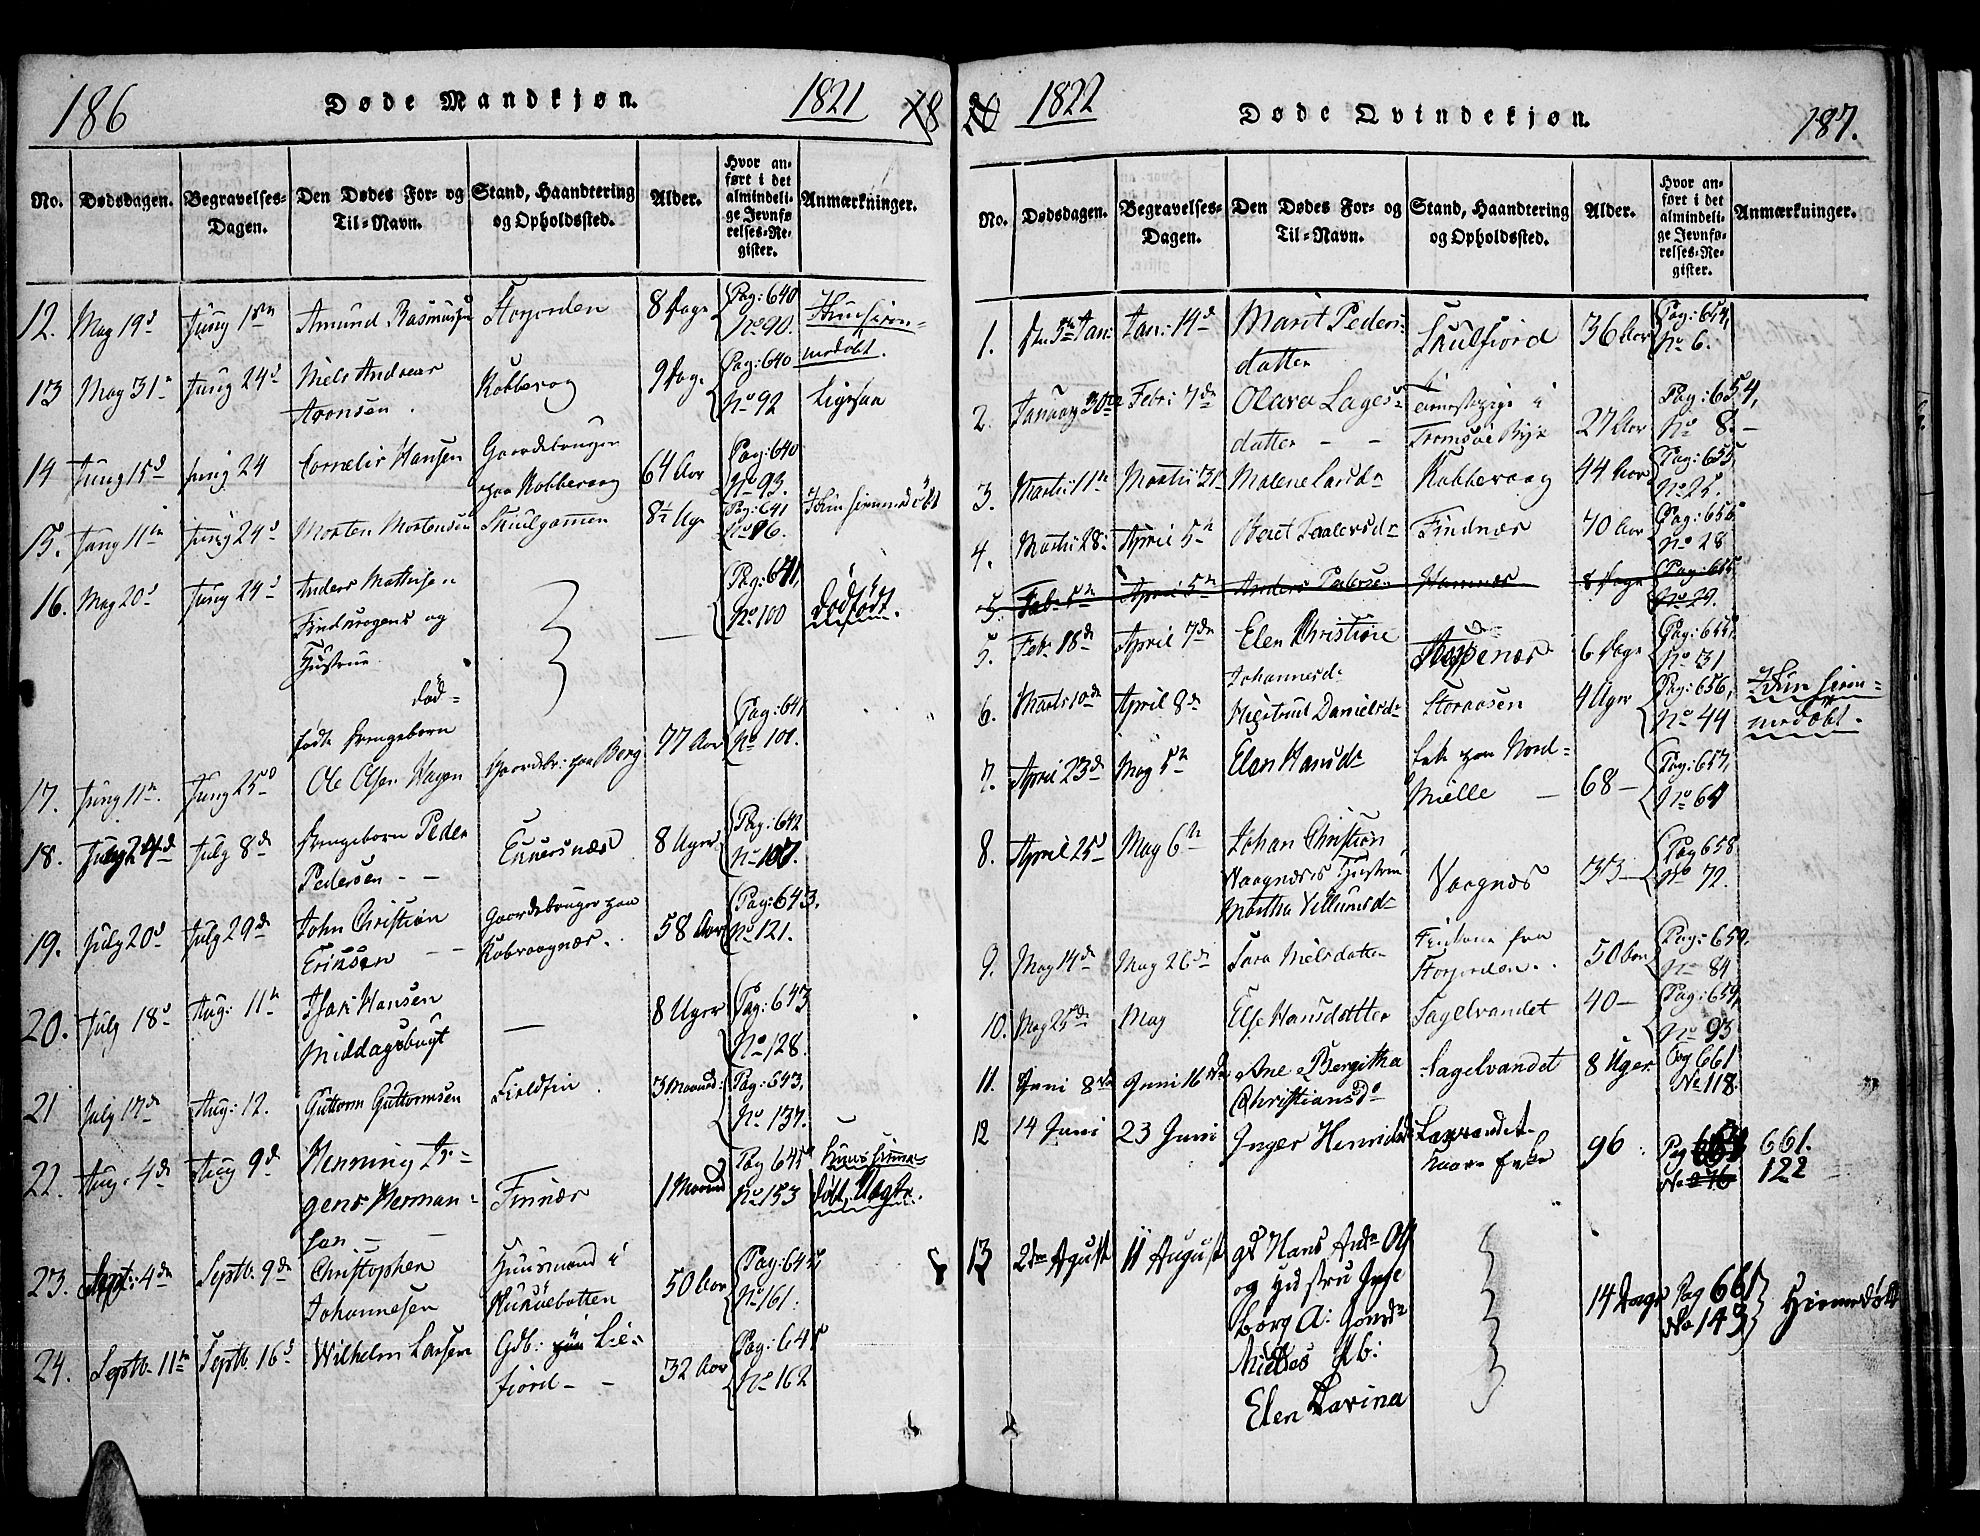 186
Døde Mandkjøn.
1821
No.
Dødsdagen.
Begravelses-Dagen.
Den Dødes For- og Til-Navn.
Stand, Haandtering og Opholdssted.
Alder.
Hvor anført i det almindelige Jevnførelses-Register.
Anmærkninger.
12. May 19d Juny 1ste Amund Rasmusen Storjorden 8 Dage Pag: 640 No 90. Hiemmedøbt.
13 May 31te Juny 24d Niels Andreas Aronsen Kobbevog 9 Dage Pag: 640 No 92 Ligesaa
14 Juny 15d Juny 24 Cornelis Hansen Gaardsbruger paa Kobbevog 64 Aar Pag: 640 No 93.
15. Juny 11te Juny 24d Morten Mortensen Skulgammen 8½ Uge Pag: 641 No 96. Hiemmedøbt
16. May 20d Juny 24d Anders Mathisen
og Hustrue
død-
fødte Drengebarn
— Pag: 641, No 100 Dødfødt.
17. Juny 11te Juny 25d Ole Olsen Hagen Gaardbr: paa Berg 77 Aar Pag: 641 No 101.
18. July 8d Drengebarn Peder Pedersen Einersnæs 8 Uger Pag: 642 No 107.
19. July 20d July 29de John Christian Eriksen Gaardsbruger paa Kobvaagnæs. 58 Aar Pag: 643. No 121.
20. July 18d Aug: 11te Isak Hansen Middagsbugt — 8 Uger Pag: 643 No 128.
21 July 17de Aug: 12. Guttorm Guttormsen Fieldfin. 3 Maaned: Pag: 643. No 137.
22. Aug. 4de Aug 9de Henning Jørgens Hermansen Finnæs 1 Maaned Pag 645 No 153
23. Sept: 4de Septb. 9de Christopher Johannesen Huusmand i 50 Aar Pag: 645, No 161.
24. Septb. 11te Septb. 16d Wilhelm Larsen Gdb: 32 Aar Pag: 645 No 162
1822
Døde Qvindekjøn.
187.
No.
Dødsdagen.
Begravelses-Dagen.
Den Dødes For- og Til-Navn.
Stand, Haandtering og Opholdssted.
Alder.
Hvor anført i det almindelige Jevnførelses-Register.
Anmærkninger.
1. den 5te Jan: Jan: 14d Marit Pedersdatter Skulfiord 36 Aar Pag: 654, No 6.
2. January 30te Febr: 7de Olava Lagesdatter Tienestepige i Tromsøe Bye 27 Aar Pag: 654, No 8.
3. Martii 11te Martii 31te Malene Larsd. Kobbevaag 44 Aar Pag: 655, No 25.
4. Martii 28: April 5te Beret Findnæs 70 Aar Pag: 655 No 28
5. Feb: 5te April 5te Anders Pedersen Hamnæs 8 Dage Pag: 655 No 29.
5. Febr. 18de April 7de Elen Christine Johannesd. 6 Dage Pag: 655, No 31
6. Martii 10de April 8de Danielsd. Storaasen 4 Uger Pag: 656, No 44 Hiemmedøbt.
7. April 23de May 5te Elen Hansd. Enke paa Nord-Mielle 68 Pag: 657, No 64
8. April 25d May 6te Johan Christian Vaagnæses Hustrue Martha Villumsd. Vaagnæs 33 Pag 658. No 72.
9. May 14de May 26de Sara Nielsdatter Finkone fra Storjorden. 50 Aar Pag: 659. No 84
10. May 25de May Else Hansdatter Sagelvandet 40 Pag: 659, No 93
11. Juni 8de Juni 16de Ane Bergitha Christiansd. Sagelvandet 8 Uger Pag 661 No 118.
12 14 Juni 23 Juni Inger Henriksd. 96 Pag 661. No 122
13 2den Agust 11 August Hans
og Hustru Inge
borg A:
Pb:
Elen Karina
14 Dage Pag 661 No 143 Hiemedøbt